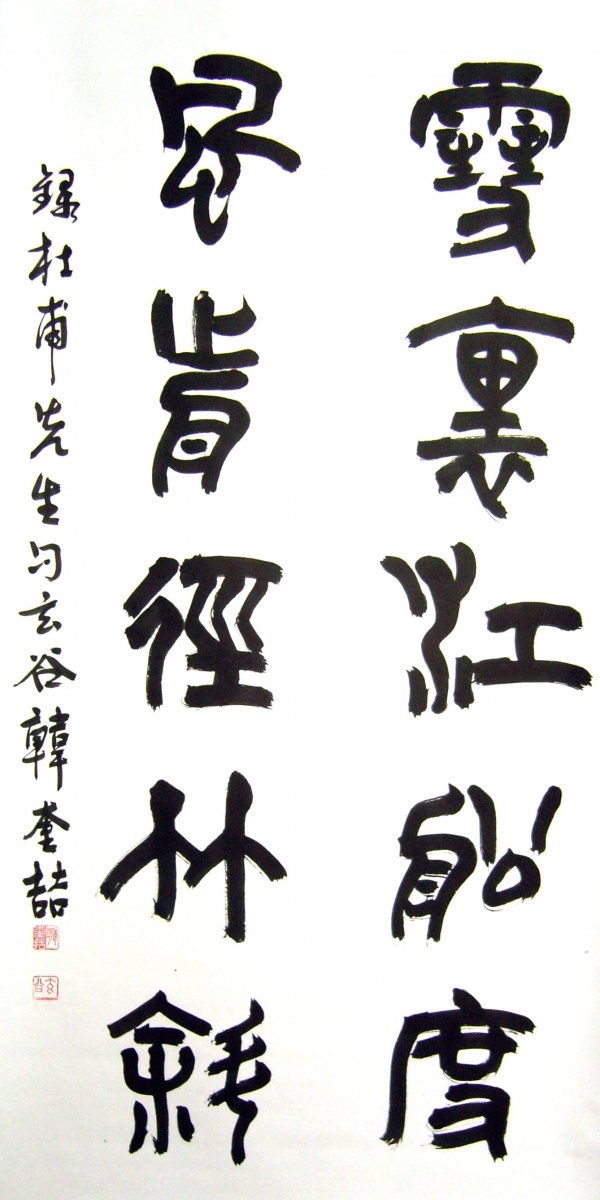 雪裏江船度
風前徑竹斜
錄杜甫先生句玄谷韓奎喆
玄谷